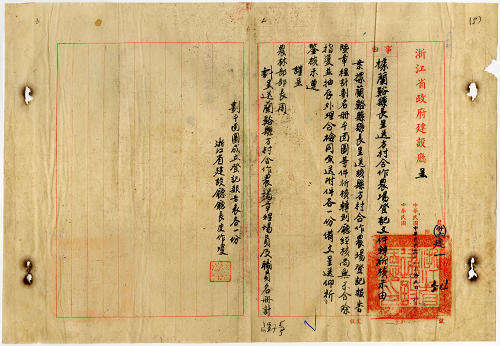 浙江省政府建設廳 呈
事由
據蘭谿縣長呈送方村合作農場登記文件轉祈核示由
案據蘭谿縣縣長呈送該縣方村合作農場登記報告
暨章程計劃名冊平面圖等件祈核轉到廳經核尚無不合除
指復並抽存外理合檢同原送附件各一份備文呈送仰祈
鑒核示遵
謹呈
農林部部長周
計呈送蘭谿縣方村合作農場
場員及職員名冊計
劃平面圖成立登記報告表各一份
浙江省建設廳廳長皮作瓊
中華民國